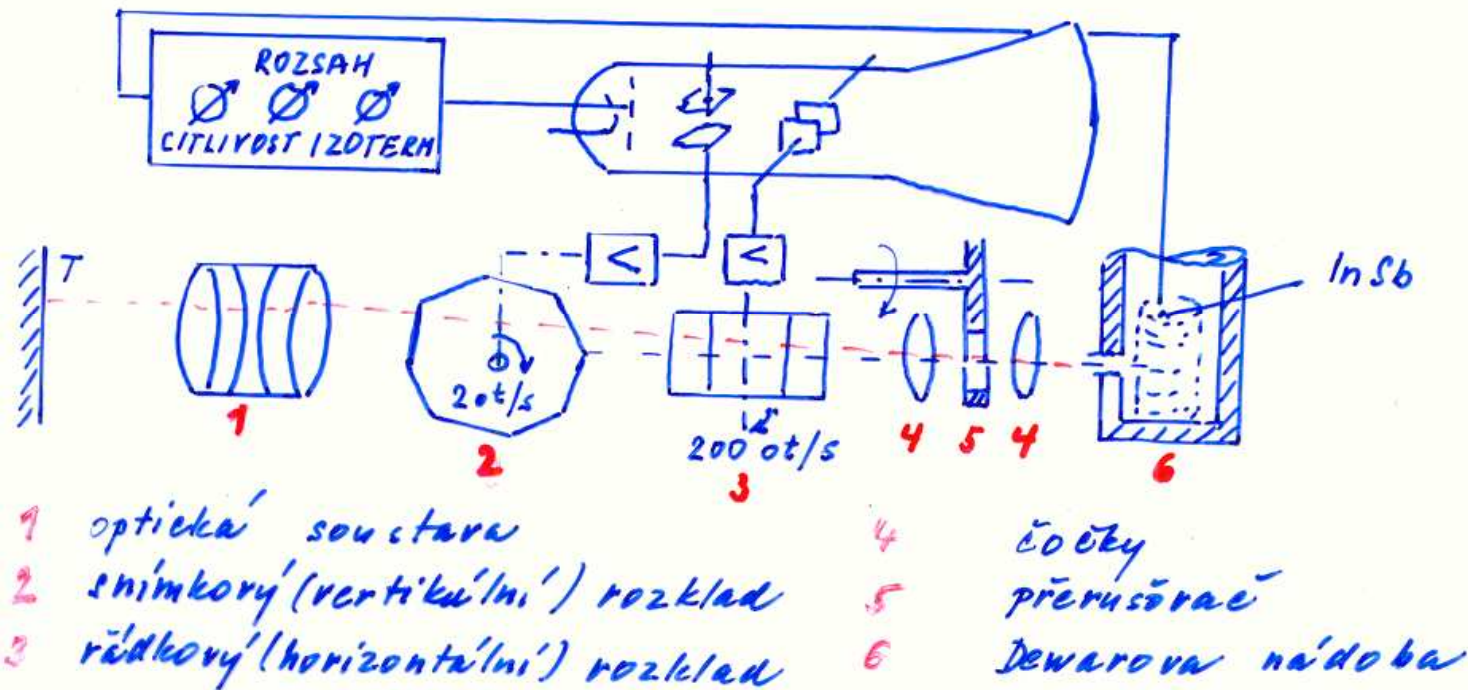 ROZSAH
CITLIVOST IZOTERM
T
< <
InSb
2 ot/s
200 ot/s
1 2 3 4 5 4 6
1 optická soustava
2 snímkový (vertikální) rozklad
3 řádkový (horizontální) rozklad
4 čočky
5 přerušovač
6 Dewarova nádoba